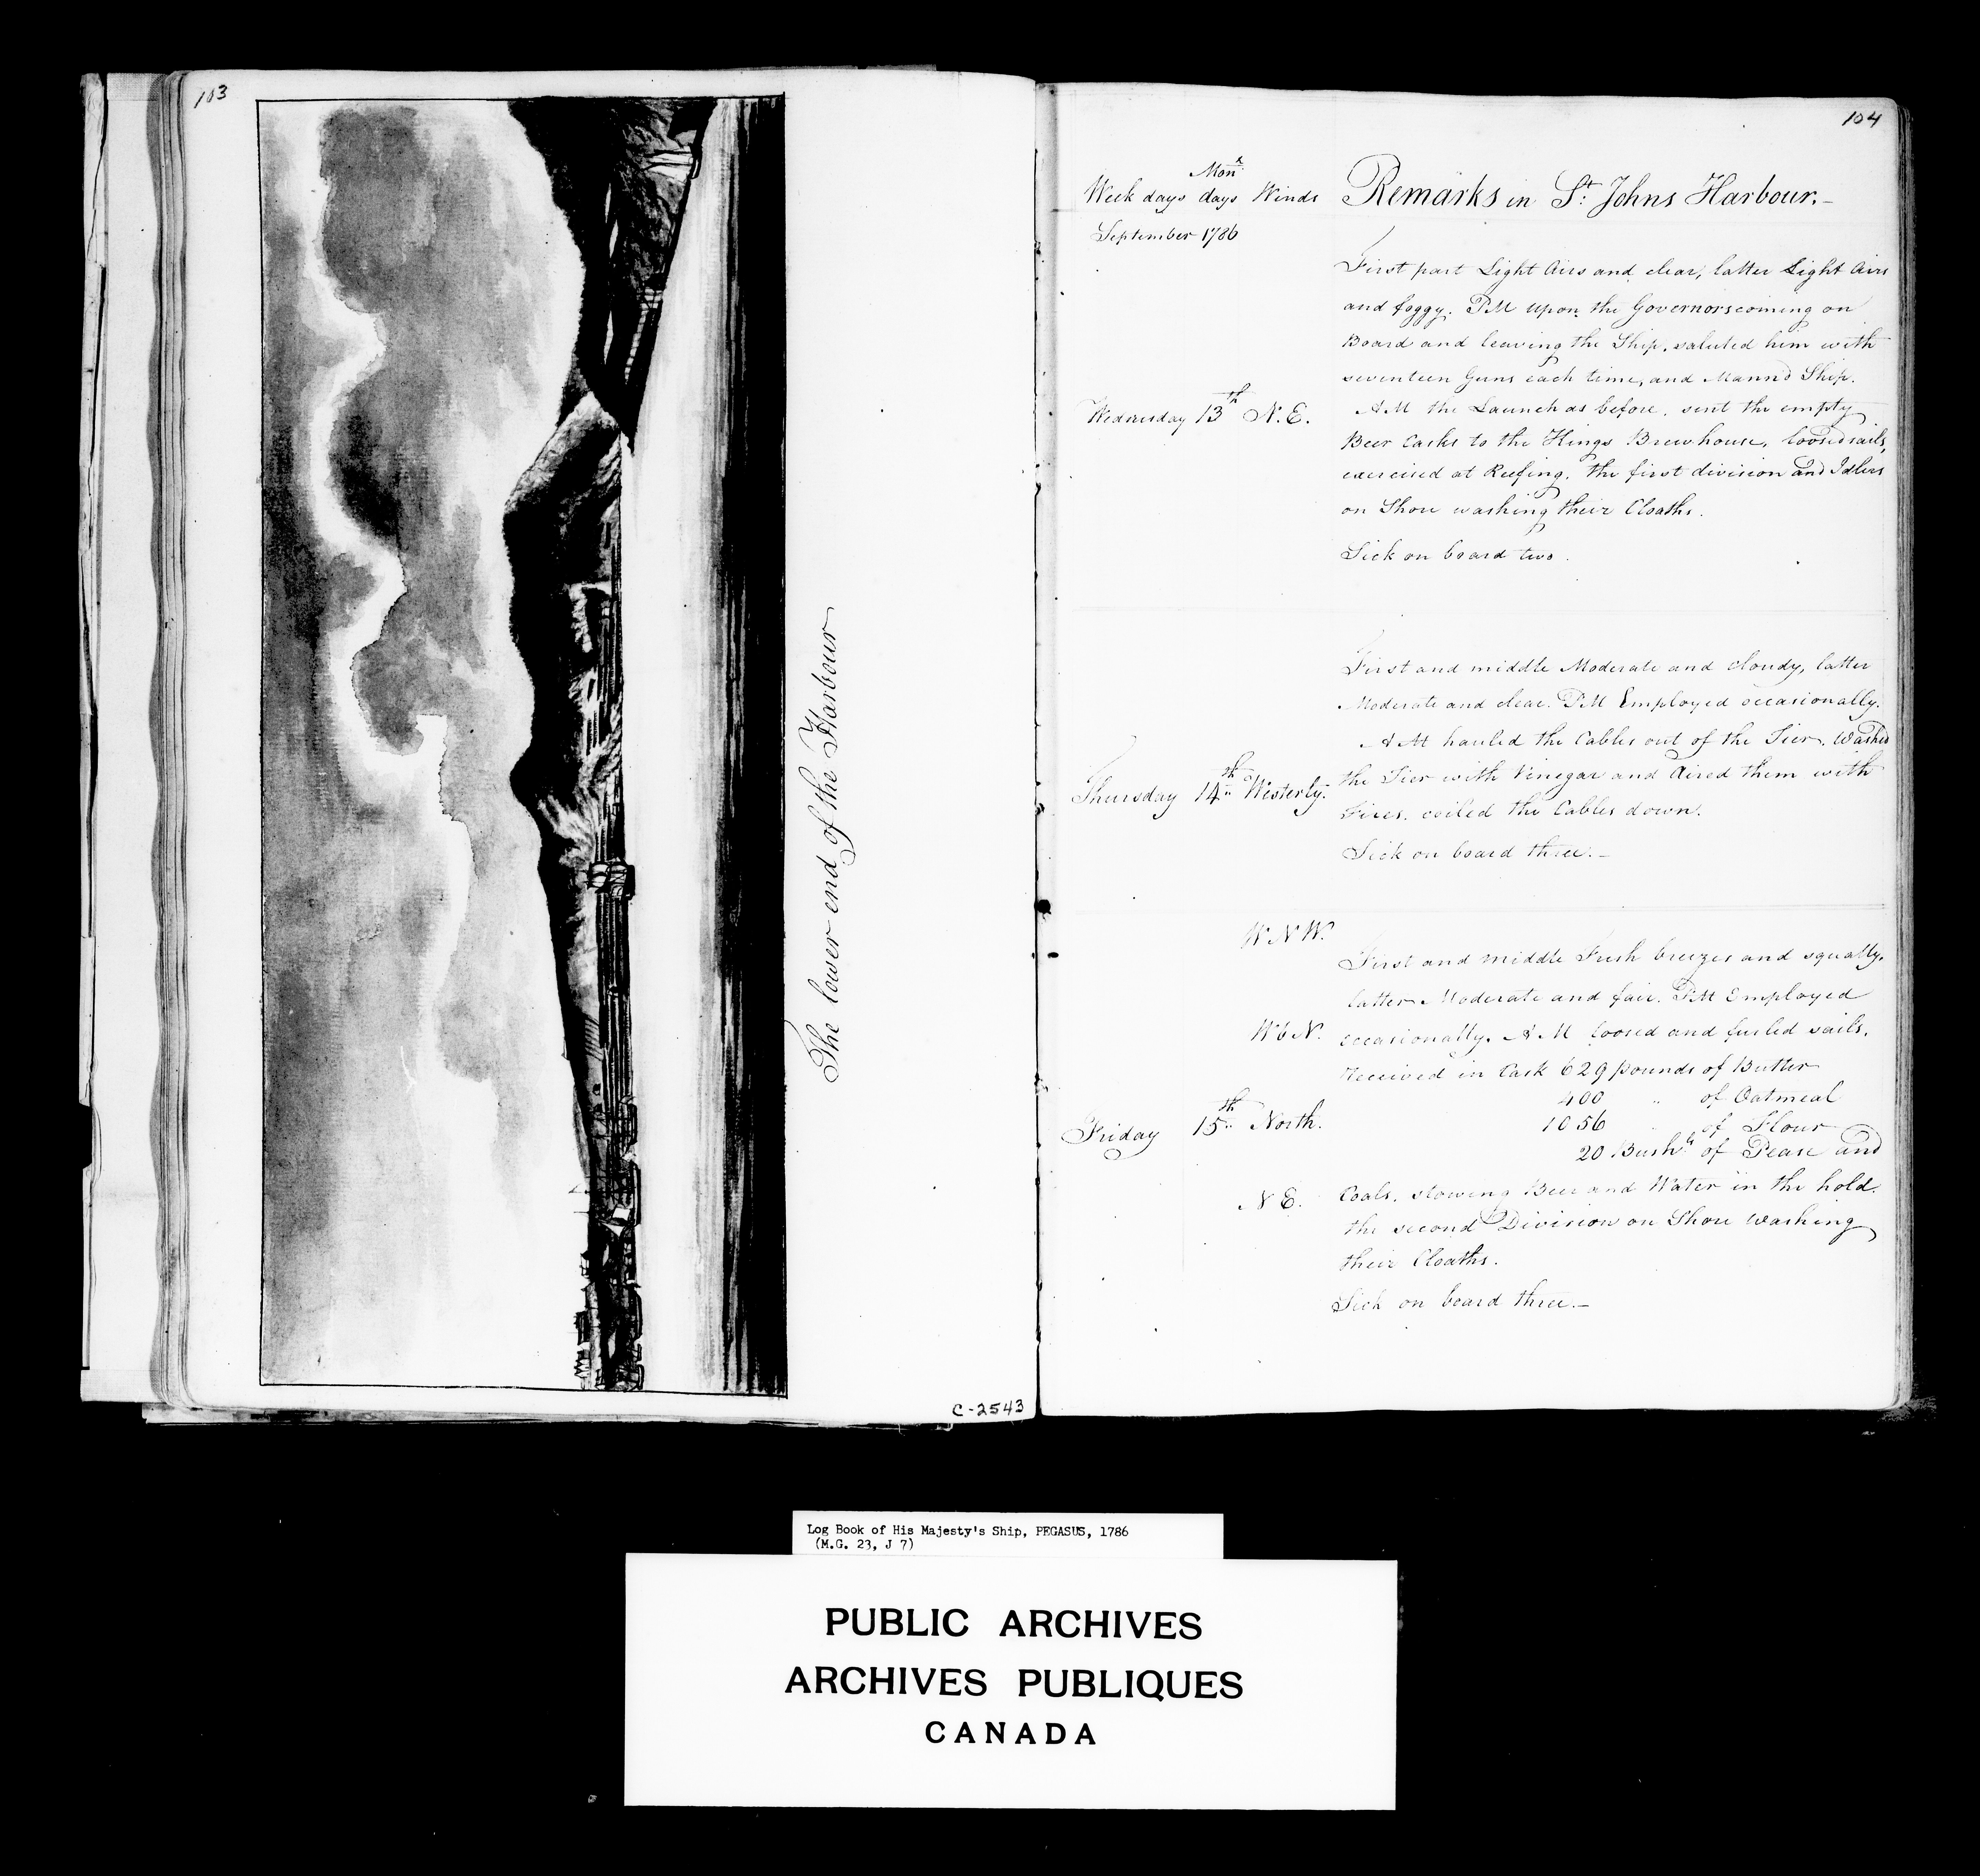 103
The lower end of the Harbour
C-2543
104
Week days Mon.ʰ days Winds Remarks in S.ᵗ Johns Harbour.–
September 1786
First part Light Airs and clear, latter Light Airs
and foggy. PM upon the Governors coming on
Board and leaving the Ship, saluted him with
seventeen Guns each time, and Mann'd Ship.
Wednesday 13ᵗʰ N.E. AM the Launch as before. sent the empty
Beer Casks to the Kings Brewhouse, loosed sails,
exercised at Reefing. the first division and Idlers
on Shore washing their Cloaths.
Sick on board two.
First and middle Moderate and cloudy, latter
Moderate and clear. PM Employed occasionally.
AM hauled the Cables out of the Tier. Washed
Thursday 14ᵗʰ Westerly. the Tier with Vinegar and Aired them with
Fires. coiled the Cables down.
Sick on board three.–
W N W.
First and middle Fresh breezes and squally.
latter Moderate and fair. PM Employed
W b N. occasionally. AM loosed and furled sails.
received in Cask 629 pounds of Butter
400 " of Oatmeal
Friday 15ᵗʰ North. 1056 of Flour
20 Bush.ˡˢ of Pease and
N E. Coals. stowing Beer and Water in the hold.
the second Division on Shore washing
their Cloaths.
Sick on board three.–
Log Book of His Majesty's Ship, PEGASUS, 1786
(M.G. 23, J 7)
PUBLIC ARCHIVES
ARCHIVES PUBLIQUES
CANADA